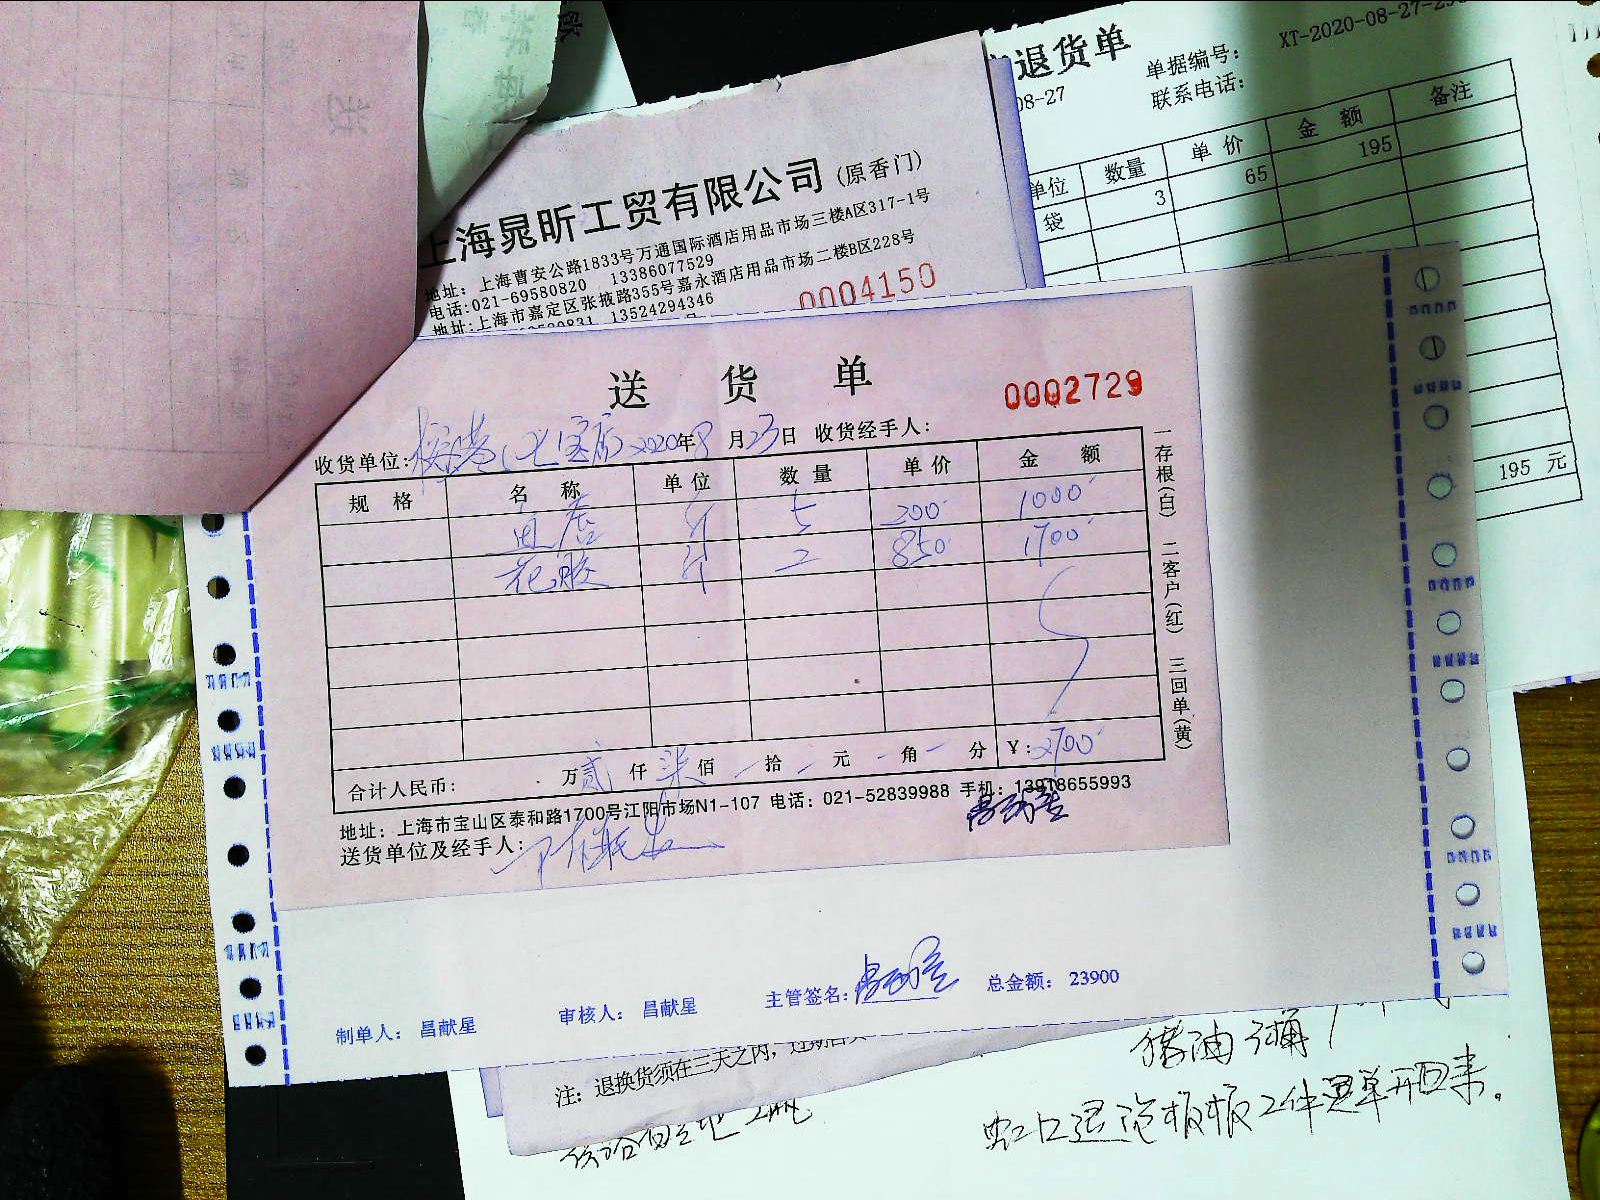 退货单
单据编号：
XT-2020-08-27-
08-27
联系电话：
单位 数量 单价 金额 备注
袋 3 65 195
195 元
上海晁昕工贸有限公司(原香门)
地址：上海曹安公路1833号万通国际酒店用品市场三楼A区317-1号
电话:021-69580820 13386077529
地址:上海市嘉定区张掖路355号嘉永酒店用品市场二楼B区228号
13524294346
0004150
送 货 单
0002729
收货单位: 2020年8月23日 收货经手人：
规 格 名 称 单位 数量 单价 金 额
斤 5 200 1000
花胶 斤 2 850 1700
合计人民币： 万贰仟柒佰 拾 元 角 分 ¥：2700
地址：上海市宝山区泰和路1700号江阳市场N1-107 电话：021-52839988 手机：13918655993
送货单位及经手人：
昌献星
一存根(白) 二客户(红) 三回单(黄)
制单人： 昌献星 审核人： 昌献星 主管签名: 昌献星 总金额： 23900
注：退换货须在三天之内，
猪油 1桶
虹口退 板板2件 单开回来。